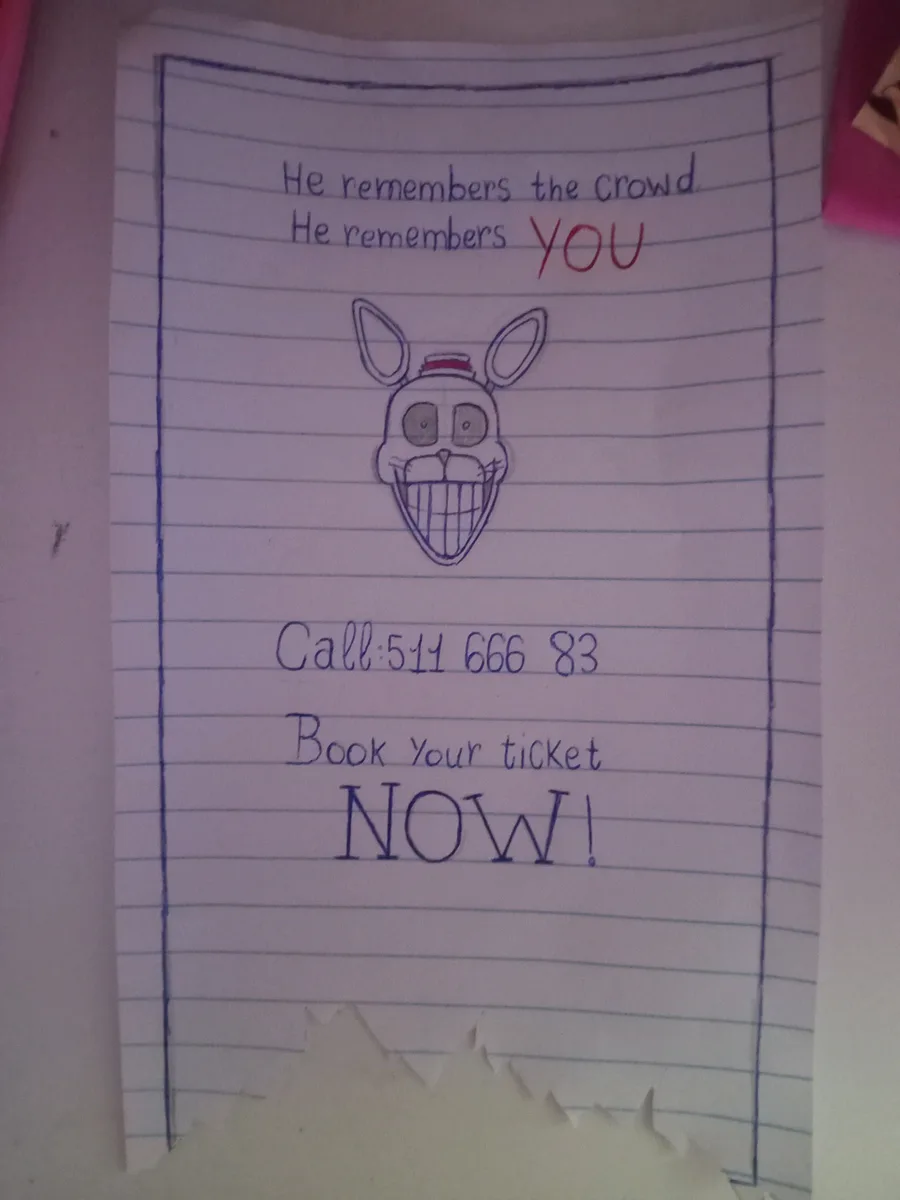 He remembers the crowd.
He remembers YOU
Call:511 666 83
Book Your ticket
NOW!